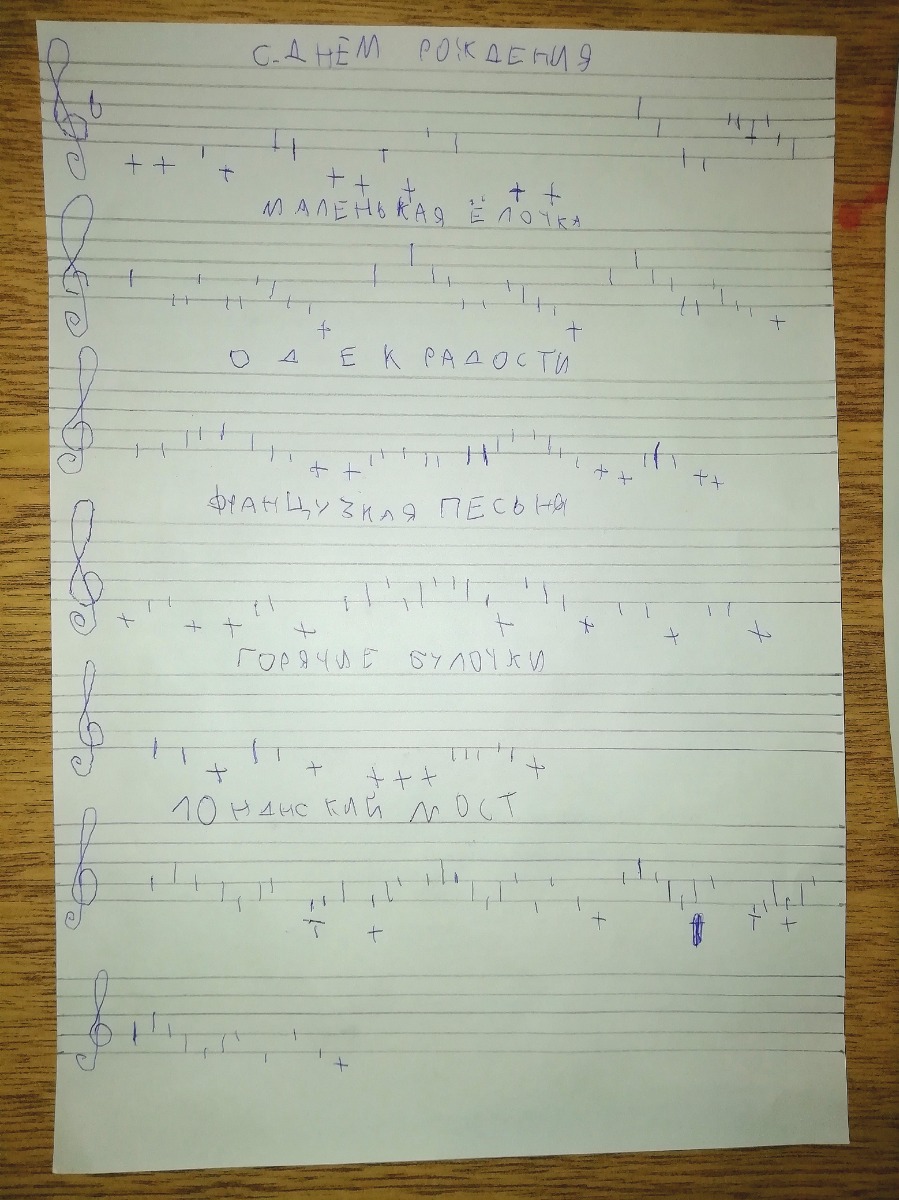 С ДНЁМ РОЖДЕНИЯ
МАЛЕНЬКАЯ ЁЛОЧКА
ОДЕ К РАДОСТИ
ФРАНЦУЗКАЯ ПЕСЬНЯ
ГОРЯЧИЕ БУЛОЧКИ
ЛОНДНСКИЙ МОСТ